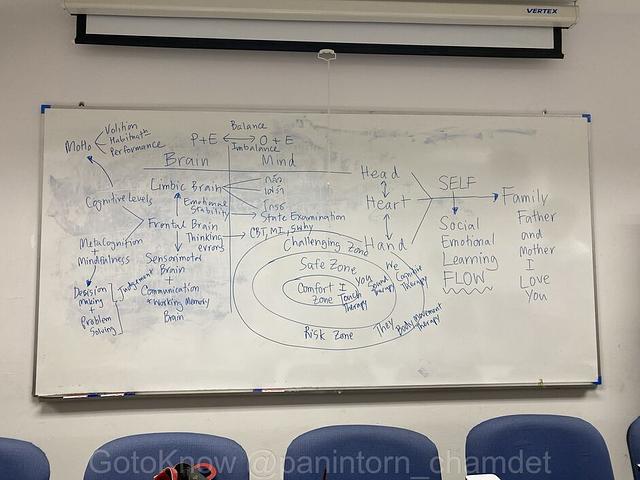 VERTEX
MoHo
Volition
Habituation
Performance
P+E ↔ O + E
Balance
Imbalance
Brain
Mind
Cognitive Levels
Limbic Brain
กลัว
เศร้า
โกรธ
Emotional
Stability
State Examination
Frontal Brain
CBT, MI, 5why
Thinking
errors
Metacognition
+
Mindfulness
Sensorimotor
Brain
+
Communication
+ Working Memory
Brain
Decision
Making
+
Problem
Solving
Judgement
Challenging Zone
Safe Zone
Comfort
Zone
I
You
We
They
Touch
Therapy
Sound
Therapy
Cognitive
Therapy
Body Movement
Therapy
Risk Zone
Head
Heart
Hand
SELF
Social
Emotional
Learning
FLOW
Family
Father
and
Mother
I
Love
You
GotoKnow @panintorn_chamdet